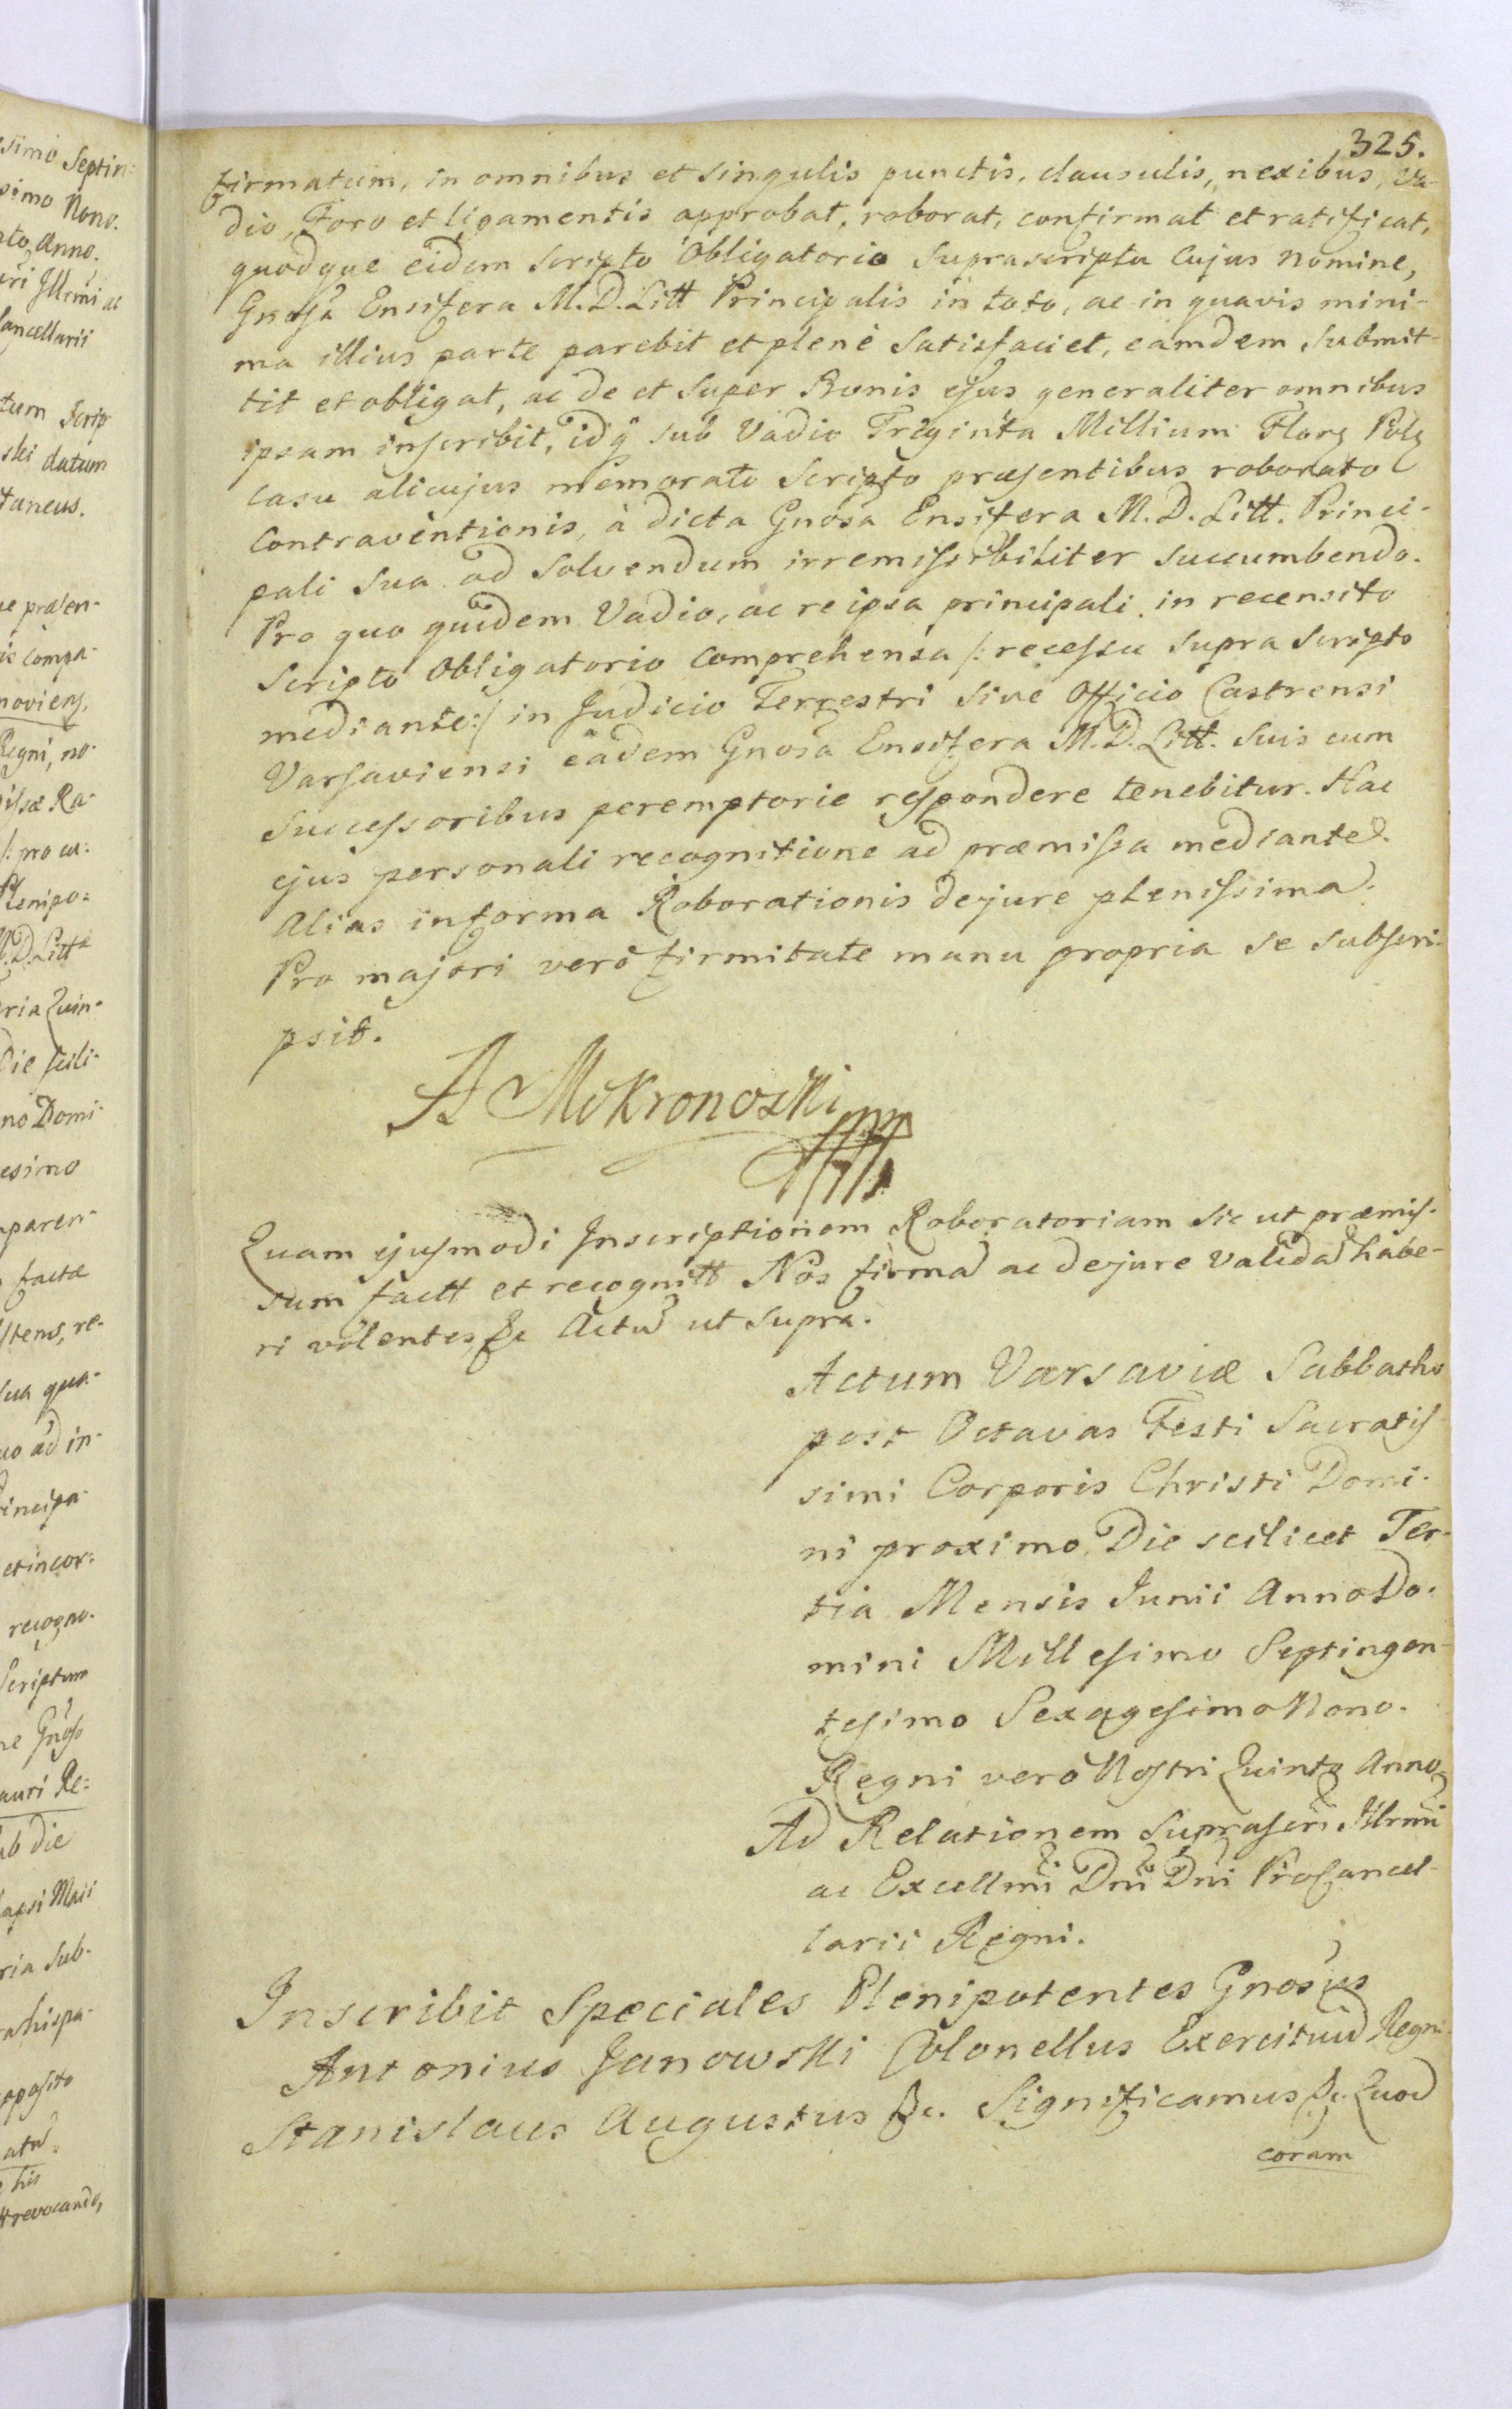 325.
firmatum, in omnibus et singulis punctis, clausulis, nexibus, Va-
dio, Foro et ligamentis approbat, roborat, confirmat et ratificat,
quodque eidem scripto Obligatorio suprascripto Cujus nomine,
Gnosa Ensifera M.D.Litt Principalis in toto, ac in quavis mini-
ma illius parte parebit et plenè satisfaciet, eamdem submit-
tit et obligat, ac de et super Bonis ejus generaliter omnibus
ipsam inscribit, idq sub Vadio Triginta Millium Flor Pol
casu alicujus memorato Scripto præsentibus roborato
Contraventionis, à dicta Gnosa Ensifera M.D.Litt. Princi-
pali sua ad solvendum irremissibiliter succumbendo.
Pro quo quidem Vadio, ac re ipsa principali in recensito
Scripto Obligatorio comprehensa /: recessu supra scripto
mediante :/ in Judicio Terrestri sive Officio Castrensi
Varsaviensi eadem Gnosa Ensifera M.D.Litt. suis cum
successoribus peremptorie respondere tenebitur. Hac
ejus personali recognitione ad præmissa mediante.
Alias in forma Roborationis de jure plenissima.
Pro majori verò firmitate manu propria se subscri-
psit.
A Mokronoski
Quam ejusmodi Inscriptionem Roboratoriam sic ut præmis-
sum factt et recognitt Nos firma ac de jure valida habe-
ri volentes &c Actu ut supra.
Actum Varsaviæ Sabbatho
post Octavas Festi Sacratis-
simi Corporis Christi Domi-
ni proximo Die scilicet Ter-
tia Mensis Junii Anno Do-
mini Millesimo Septingen-
tesimo Sexagesimo Nono.
Regni verò Nostri Quinto Anno.
Ad Relationem suprascri Illrmi
ac Excellmi Dni Dni Procancel-
larii Regni.
Inscribit Speciales Plenipotentes Gnosus
Antonius Janowski Colonellus Exercituu Regni
Stanislaus Augustus &c. Significamus &c Quod
coram